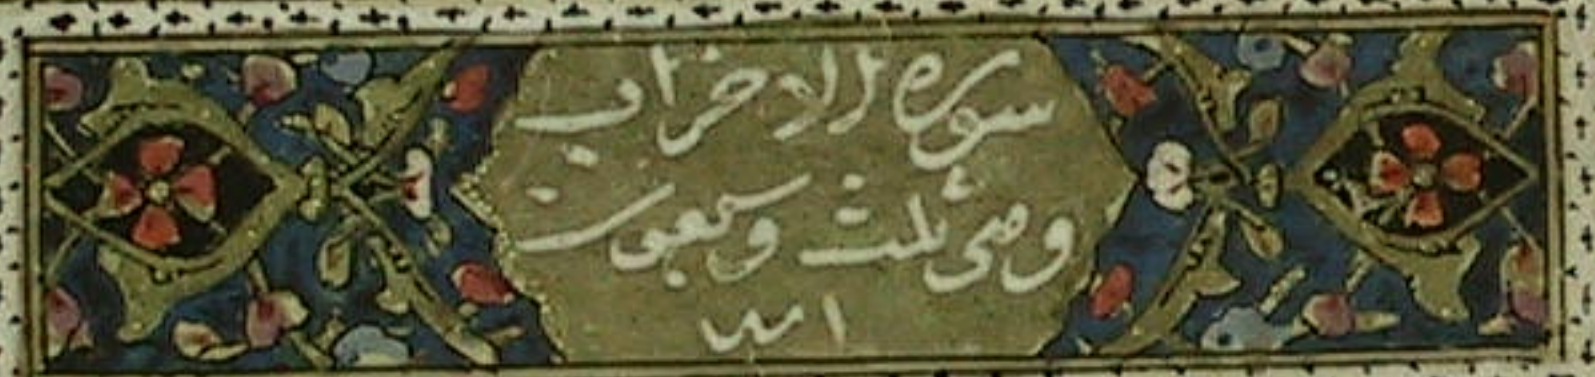 سورة الاحزاب
وهی ثلث وسبعون
آیة